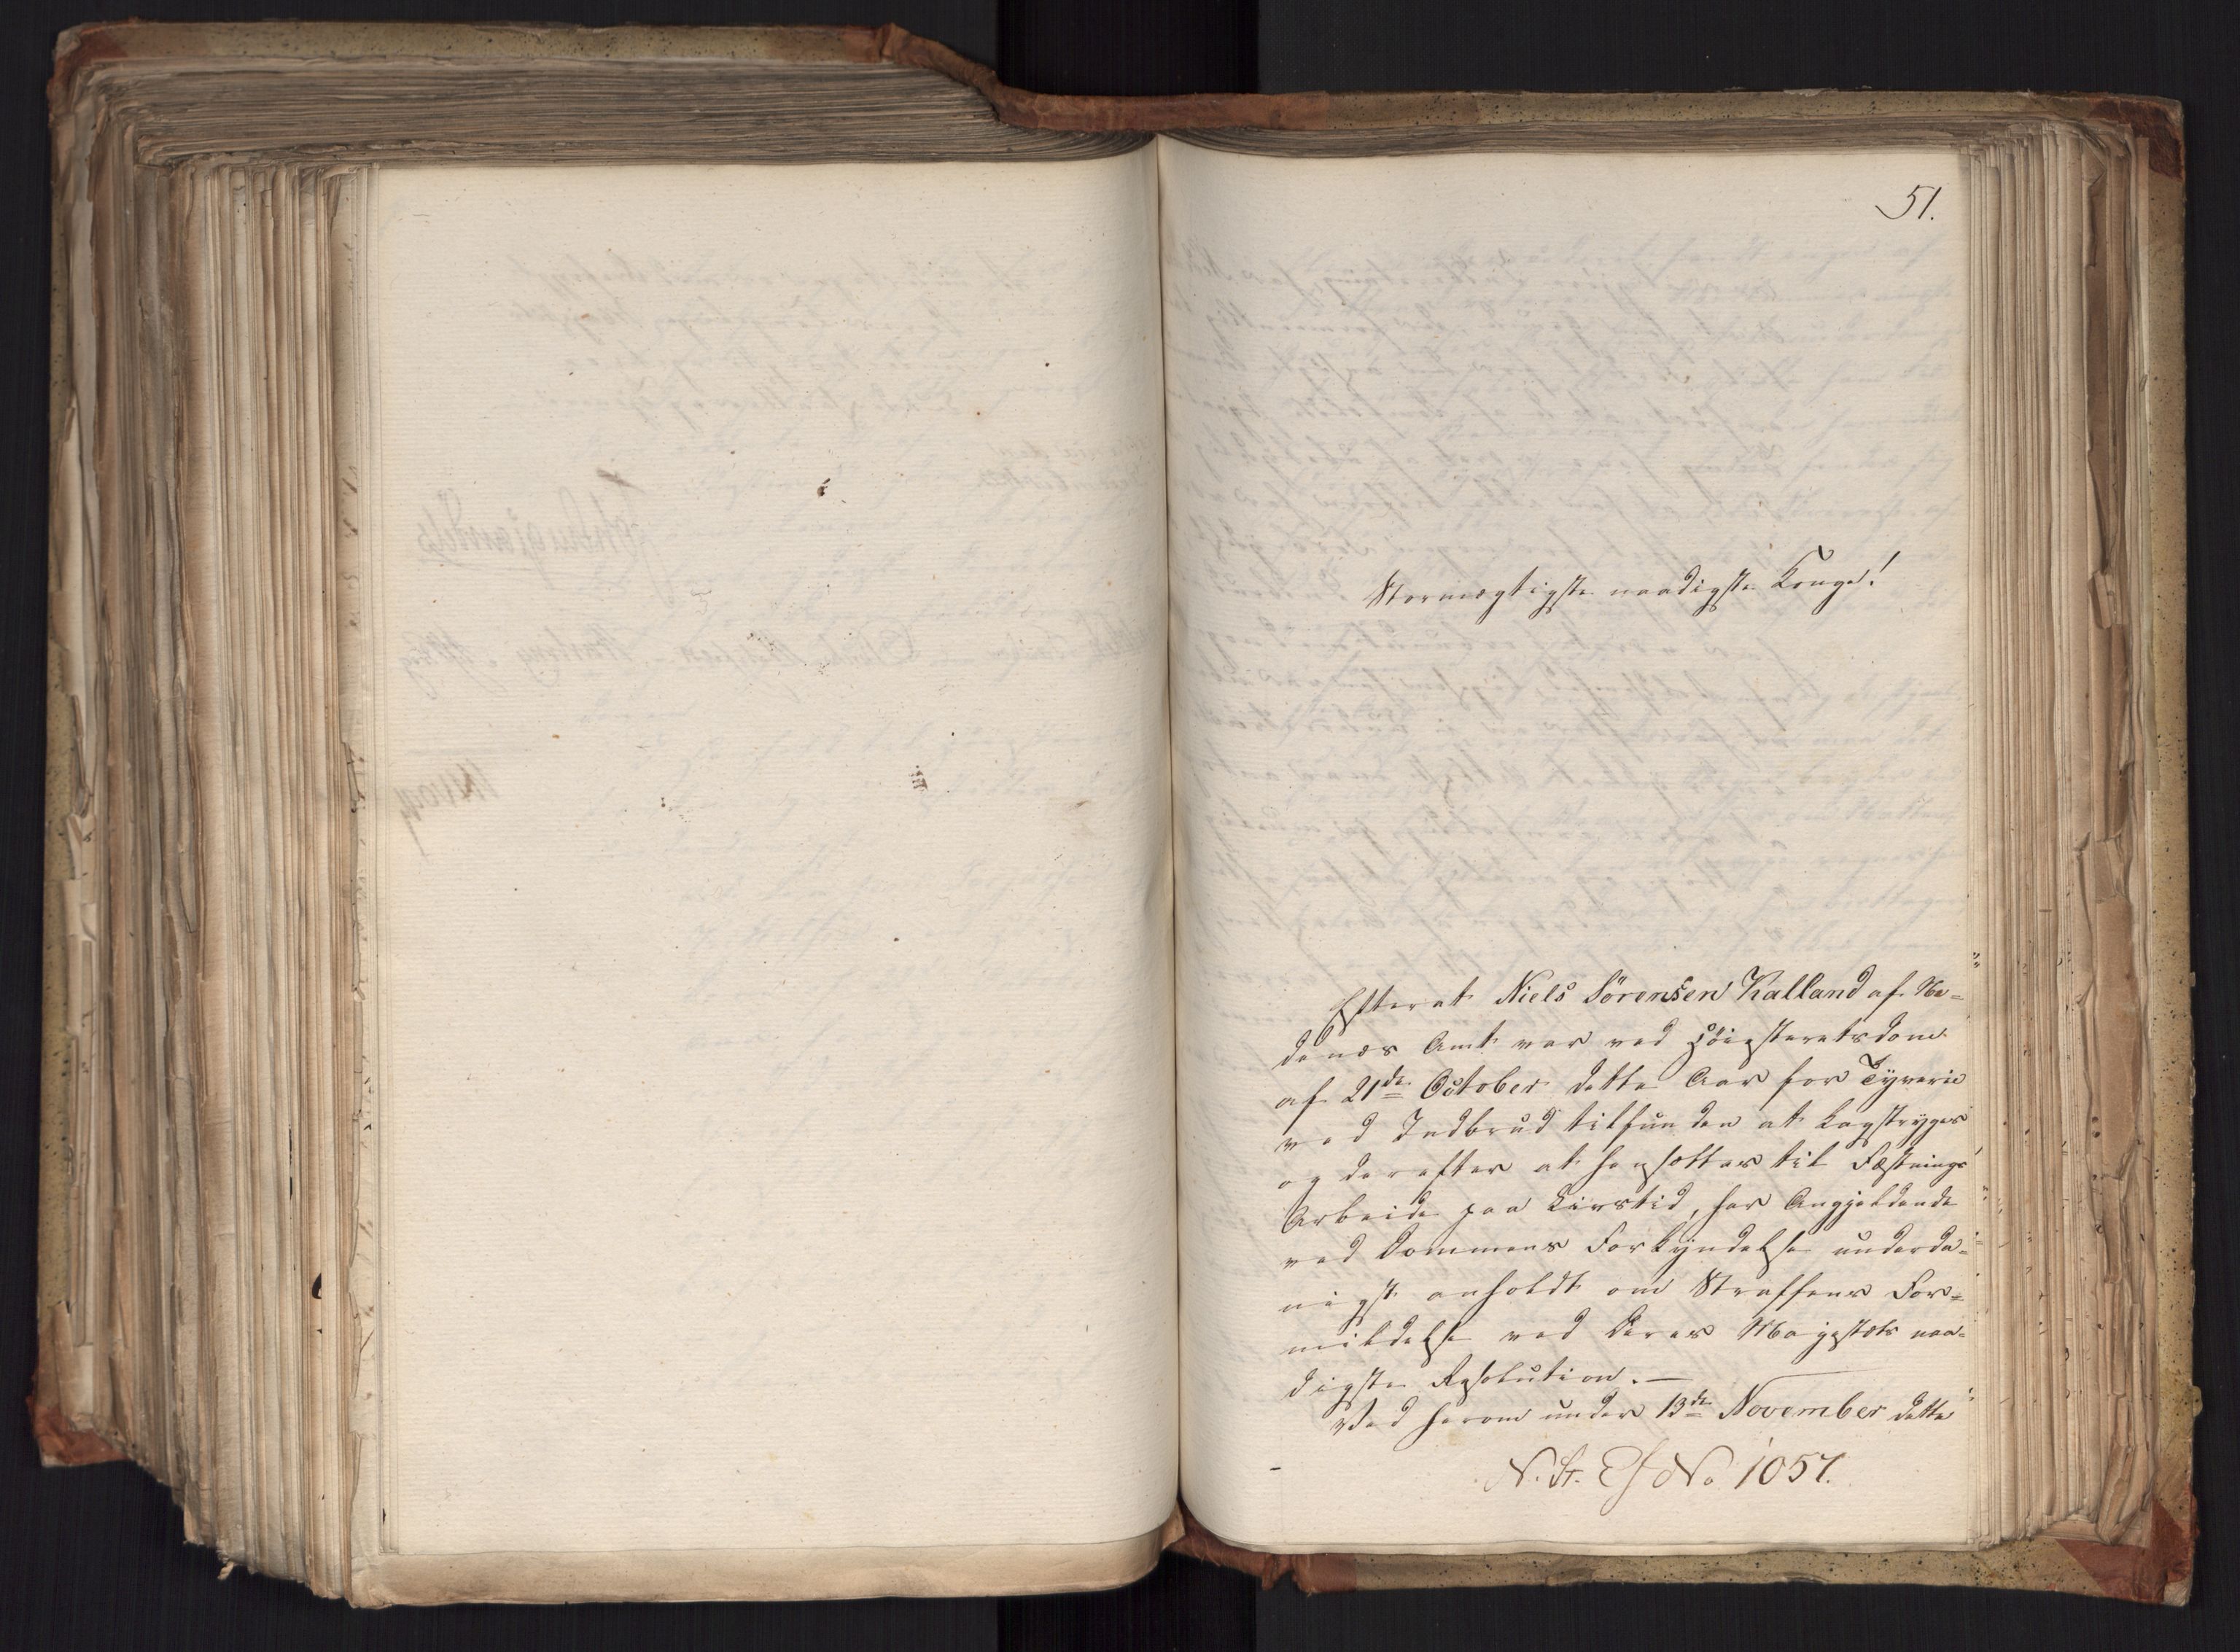 51.
Stormægtigste naadigste Konge!
Efterat Niels Sörensen Kalland af Ne=
denæs Amt var ved Höiesteretsdom
af 21de October dette Aar for Tyverie
ved Indbrud tilfunden at kagstryges
og derefter at hensættes til Fæstnings
Arbeide paa Livstid, har Angjeldende
ved Dommens Forkyndelse underda=
nigst anholdt om Straffens For=
mildelse ved Deres Majestæts naa=
digste Resolution.—
Ved herom under 13de November dette
N. St. Ex No 1057.